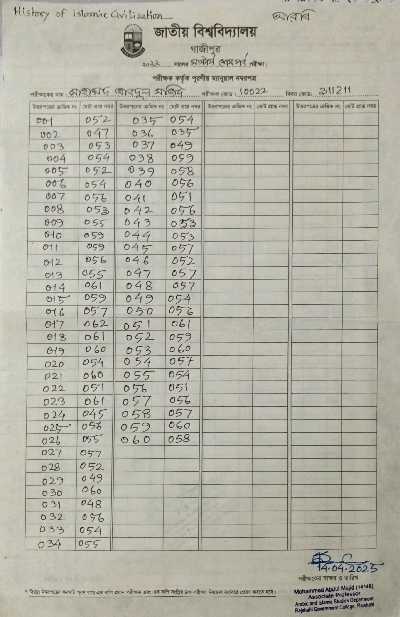 History of Islamic Civilization
আরবি
জাতীয় বিশ্ববিদ্যালয়
গাজীপুর
সালের মাস্টার্স শেষ পর্ব পরীক্ষা
পরীক্ষক কর্তৃক পূরণীয় ম্যানুয়াল নম্বরপত্র
পরীক্ষকের নাম : মোহাম্মদ আবদুল মজিদ পরীক্ষক কোড : 10022 বিষয় কোড : 211211
উত্তরপত্রের ক্রমিক নং মোট প্রাপ্ত নম্বর উত্তরপত্রের ক্রমিক নং মোট প্রাপ্ত নম্বর উত্তরপত্রের ক্রমিক নং মোট প্রাপ্ত নম্বর উত্তরপত্রের ক্রমিক নং মোট প্রাপ্ত নম্বর
001 052 035 054
002 047 036 035
003 053 037 049
004 054 038 059
005 052 039 058
006 054 040 056
007 056 041 051
008 053 042 056
009 055 043 053
010 059 044 053
011 059 045 057
012 056 046 052
013 055 047 057
014 061 048 057
015 059 049 054
016 057 050 056
017 062 051 061
018 061 052 059
019 060 053 060
020 054 054 057
021 060 055 054
022 051 056 051
023 061 057 056
024 045 058 057
025 058 059 060
026 055 060 058
027 057
028 052
029 049
030 060
031 048
032 056
033 054
034 055
14.04.2025
পরীক্ষকের স্বাক্ষর ও তারিখ
Mohammed Abdul Majid (14148)
Associate Professor
Arabic and Islamic Studies Department
Rajshahi Government College, Rajshahi